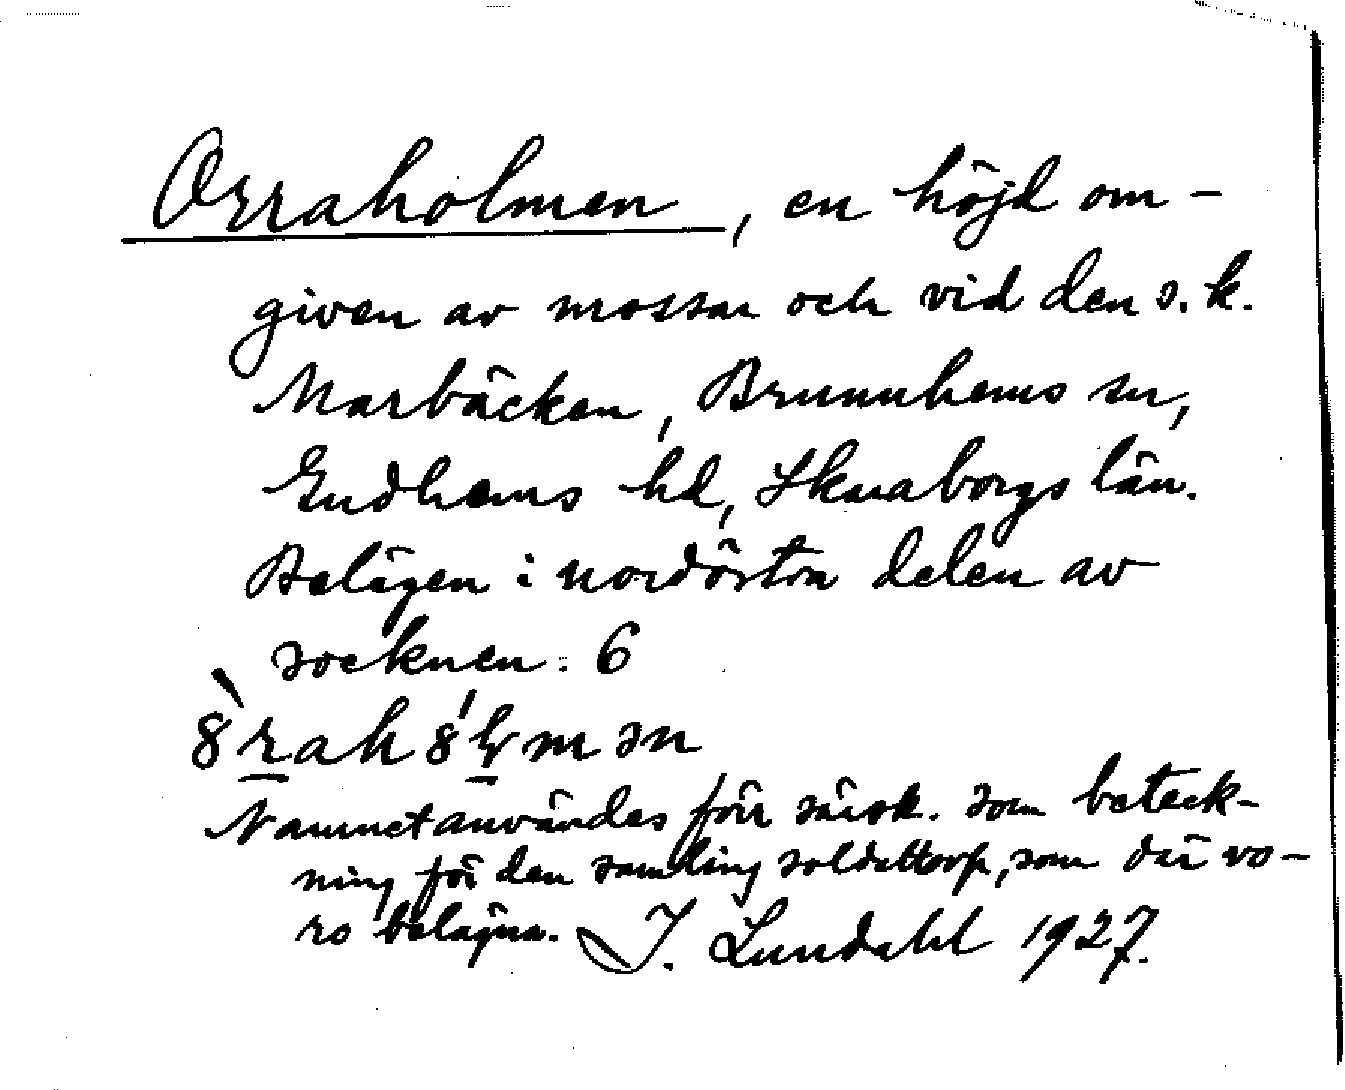 Orraholmen, en höjd om-
given av mossar och vid den s. k.
Marbäcken, Brunnhems sn,
Gudhems hd, Skaraborgs län.
Belägen i nordöstra delen av
socknen. 6
8̀rah8́lmən
Namnet användes förr särsk. som beteck-
ning för den samling soldattorp, som där vo-
ro belägna. I. Lundahl 1927.